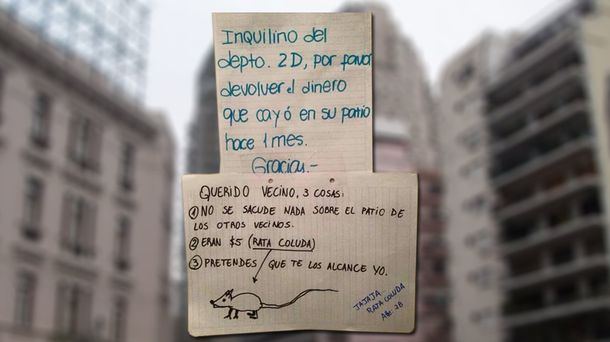 Inquilino del
depto. 2D, por favor
devolver el dinero
que cayó en su patio
hace 1 mes.
Gracias.-
QUERIDO VECINO, 3 COSAS:
① NO SE SACUDE NADA SOBRE EL PATIO DE
LOS OTROS VECINOS.
② ERAN $5 (RATA COLUDA)
③ PRETENDES QUE TE LOS ALCANCE YO.
JAJAJA
RATA COLUDA
Atte. 2B